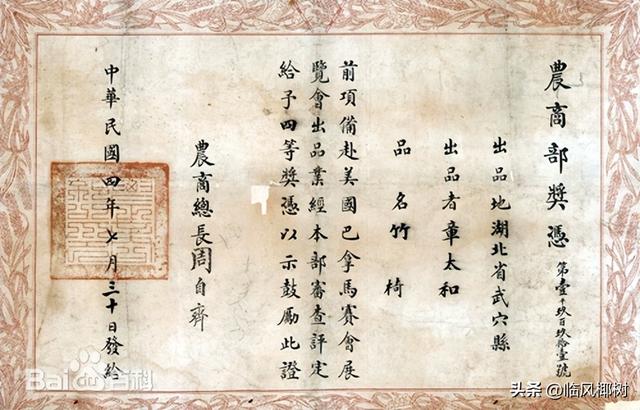 農商部獎憑
第壹千玖百玖拾壹號
出品地湖北省武穴縣
出品者章太和
品名竹椅
前項備赴美國巴拿馬賽會展
覽會出品業經本部審查評定
給予四等獎憑以示鼓勵此證
農商總長周自齊
中華民國四年七月三十日發給
Bai百科
头条 @临风椰树